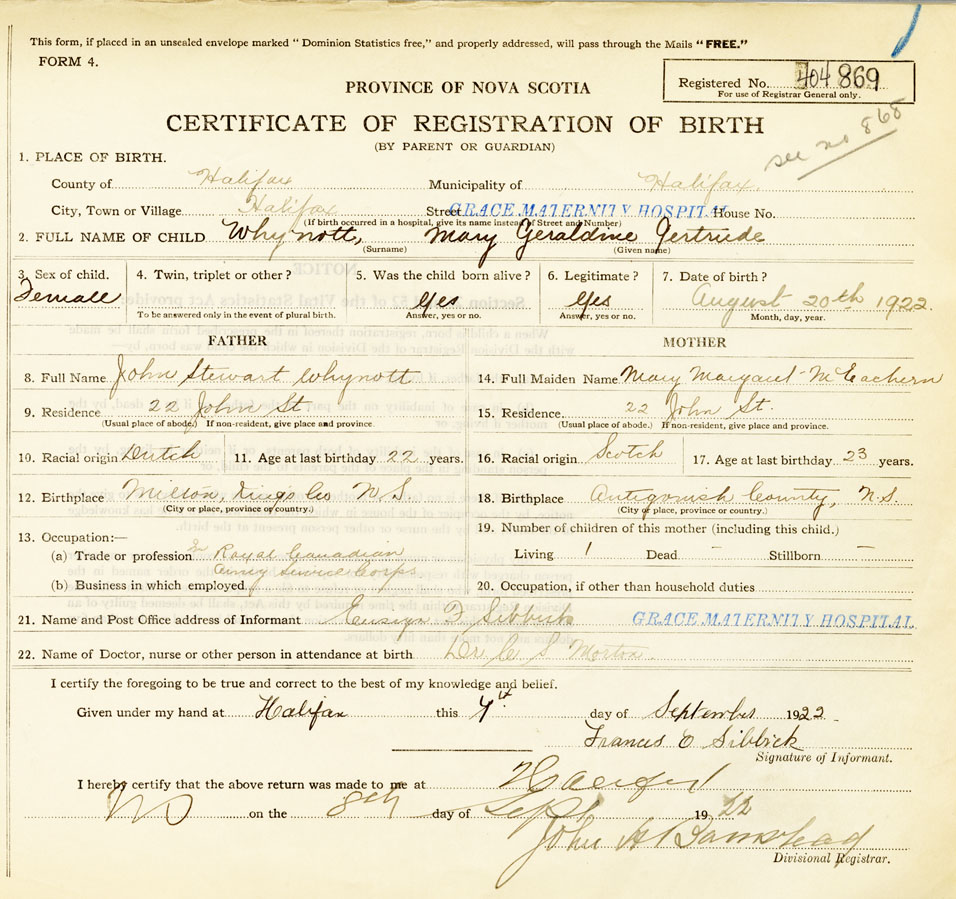 This form, if placed in an unsealed envelope marked "Dominion Statistics free," and properly addressed, will pass through the Mails "FREE."
FORM 4.
Registered No. 404 869
For use of Registrar General only.
PROVINCE OF NOVA SCOTIA
see no 868
CERTIFICATE OF REGISTRATION OF BIRTH
(BY PARENT OR GUARDIAN)
1. PLACE OF BIRTH.
County of Halifax Municipality of Halifax.
City, Town or Village Halifax Street GRACE MATERNITY HOSPITAL House No.
(If birth occurred in a hospital, give its name instead of Street and Number)
2. FULL NAME OF CHILD Whynott, Mary Geraldine Gertrude
(Surname) (Given name)
3. Sex of child. 4. Twin, triplet or other? 5. Was the child born alive? 6. Legitimate? 7. Date of birth?
Female Yes Yes August 20th 1922.
To be answered only in the event of plural birth. Answer, yes or no. Answer, yes or no. Month, day, year.
FATHER MOTHER
8. Full Name John Stewart Whynott 14. Full Maiden Name Mary Margaret McEachern
9. Residence 22 John St. 15. Residence. 22 John St.
(Usual place of abode.) If non-resident, give place and province. (Usual place of abode.) If non-resident, give place and province.
10. Racial origin Dutch 11. Age at last birthday 22 years. 16. Racial origin Scotch 17. Age at last birthday 23 years.
12. Birthplace Milton, Kings Co N S 18. Birthplace Antigonish County, N.S.
(City or place, province or country.) (City or place, province or country.)
19. Number of children of this mother (including this child.)
13. Occupation:—
(a) Trade or profession In Royal Canadian Living 1 Dead – Stillborn –
Army Service Corps
(b) Business in which employed 20. Occupation, if other than household duties
21. Name and Post Office address of Informant Ensign F. Sibbick GRACE MATERNITY HOSPITAL
22. Name of Doctor, nurse or other person in attendance at birth Dr. C S Morton.
I certify the foregoing to be true and correct to the best of my knowledge and belief.
Given under my hand at Halifax this 4th day of September 1922
Frances O Sibbick
Signature of Informant.
I hereby certify that the above return was made to me at Halifax
NS on the 8th day of Sept 1922
John A Barnstead
Divisional Registrar.